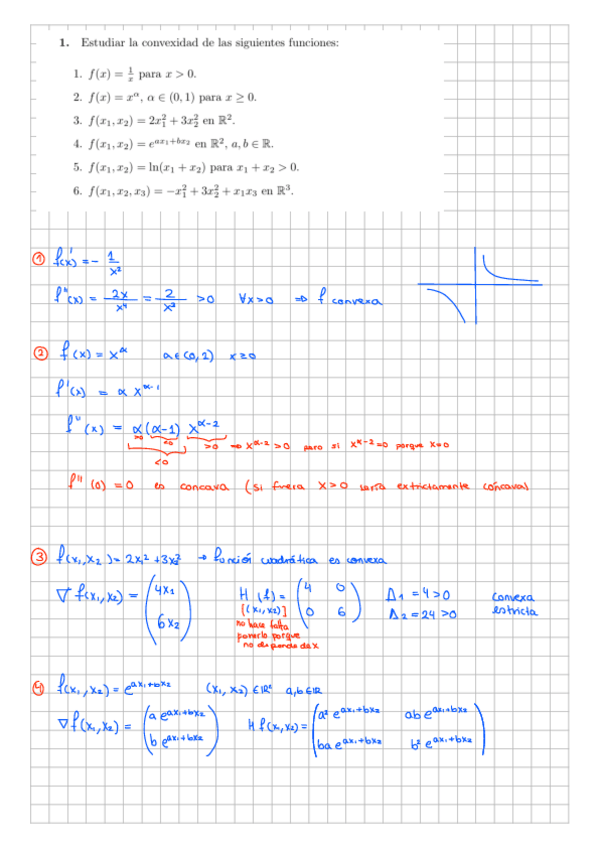 1. Estudiar la convexidad de las siguientes funciones:
1. f(x) = 1/x para x > 0.
2. f(x) = x^α, α ∈ (0, 1) para x ≥ 0.
3. f(x₁, x₂) = 2x₁² + 3x₂² en ℝ².
4. f(x₁, x₂) = e^(ax₁+bx₂) en ℝ², a, b ∈ ℝ.
5. f(x₁, x₂) = ln(x₁ + x₂) para x₁ + x₂ > 0.
6. f(x₁, x₂, x₃) = −x₁² + 3x₂² + x₁x₃ en ℝ³.
① f'(x) = − 1/x²
f''(x) = 2x/x⁴ = 2/x³ > 0 ∀x>0 ⇒ f convexa
② f(x) = x^α α ∈ (0, 1) x ≥ 0
f'(x) = α x^(α-1)
f''(x) = α(α-1) x^(α-2)
>0 <0 >0 ⇒ x^(α-2) > 0 pero si x^(α-2) = 0 porque x=0
<0
f''(0) = 0 es concava (si fuera x>0 sería extrictamente cóncava)
③ f(x₁, x₂) = 2x₁² + 3x₂² → función cuadrática es convexa
∇f(x₁, x₂) = (4x₁ 6x₂) H(f) = (4 0 0 6) Δ₁ = 4 > 0 convexa
[(x₁, x₂)] Δ₂ = 24 > 0 estricta
no hace falta
ponerlo porque
no depende da x
④ f(x₁, x₂) = e^(ax₁+bx₂) (x₁, x₂) ∈ ℝ² a, b ∈ ℝ
∇f(x₁, x₂) = (a e^(ax₁+bx₂) b e^(ax₁+bx₂)) H f(x₁, x₂) = (a² e^(ax₁+bx₂) ab e^(ax₁+bx₂) ba e^(ax₁+bx₂) b² e^(ax₁+bx₂))